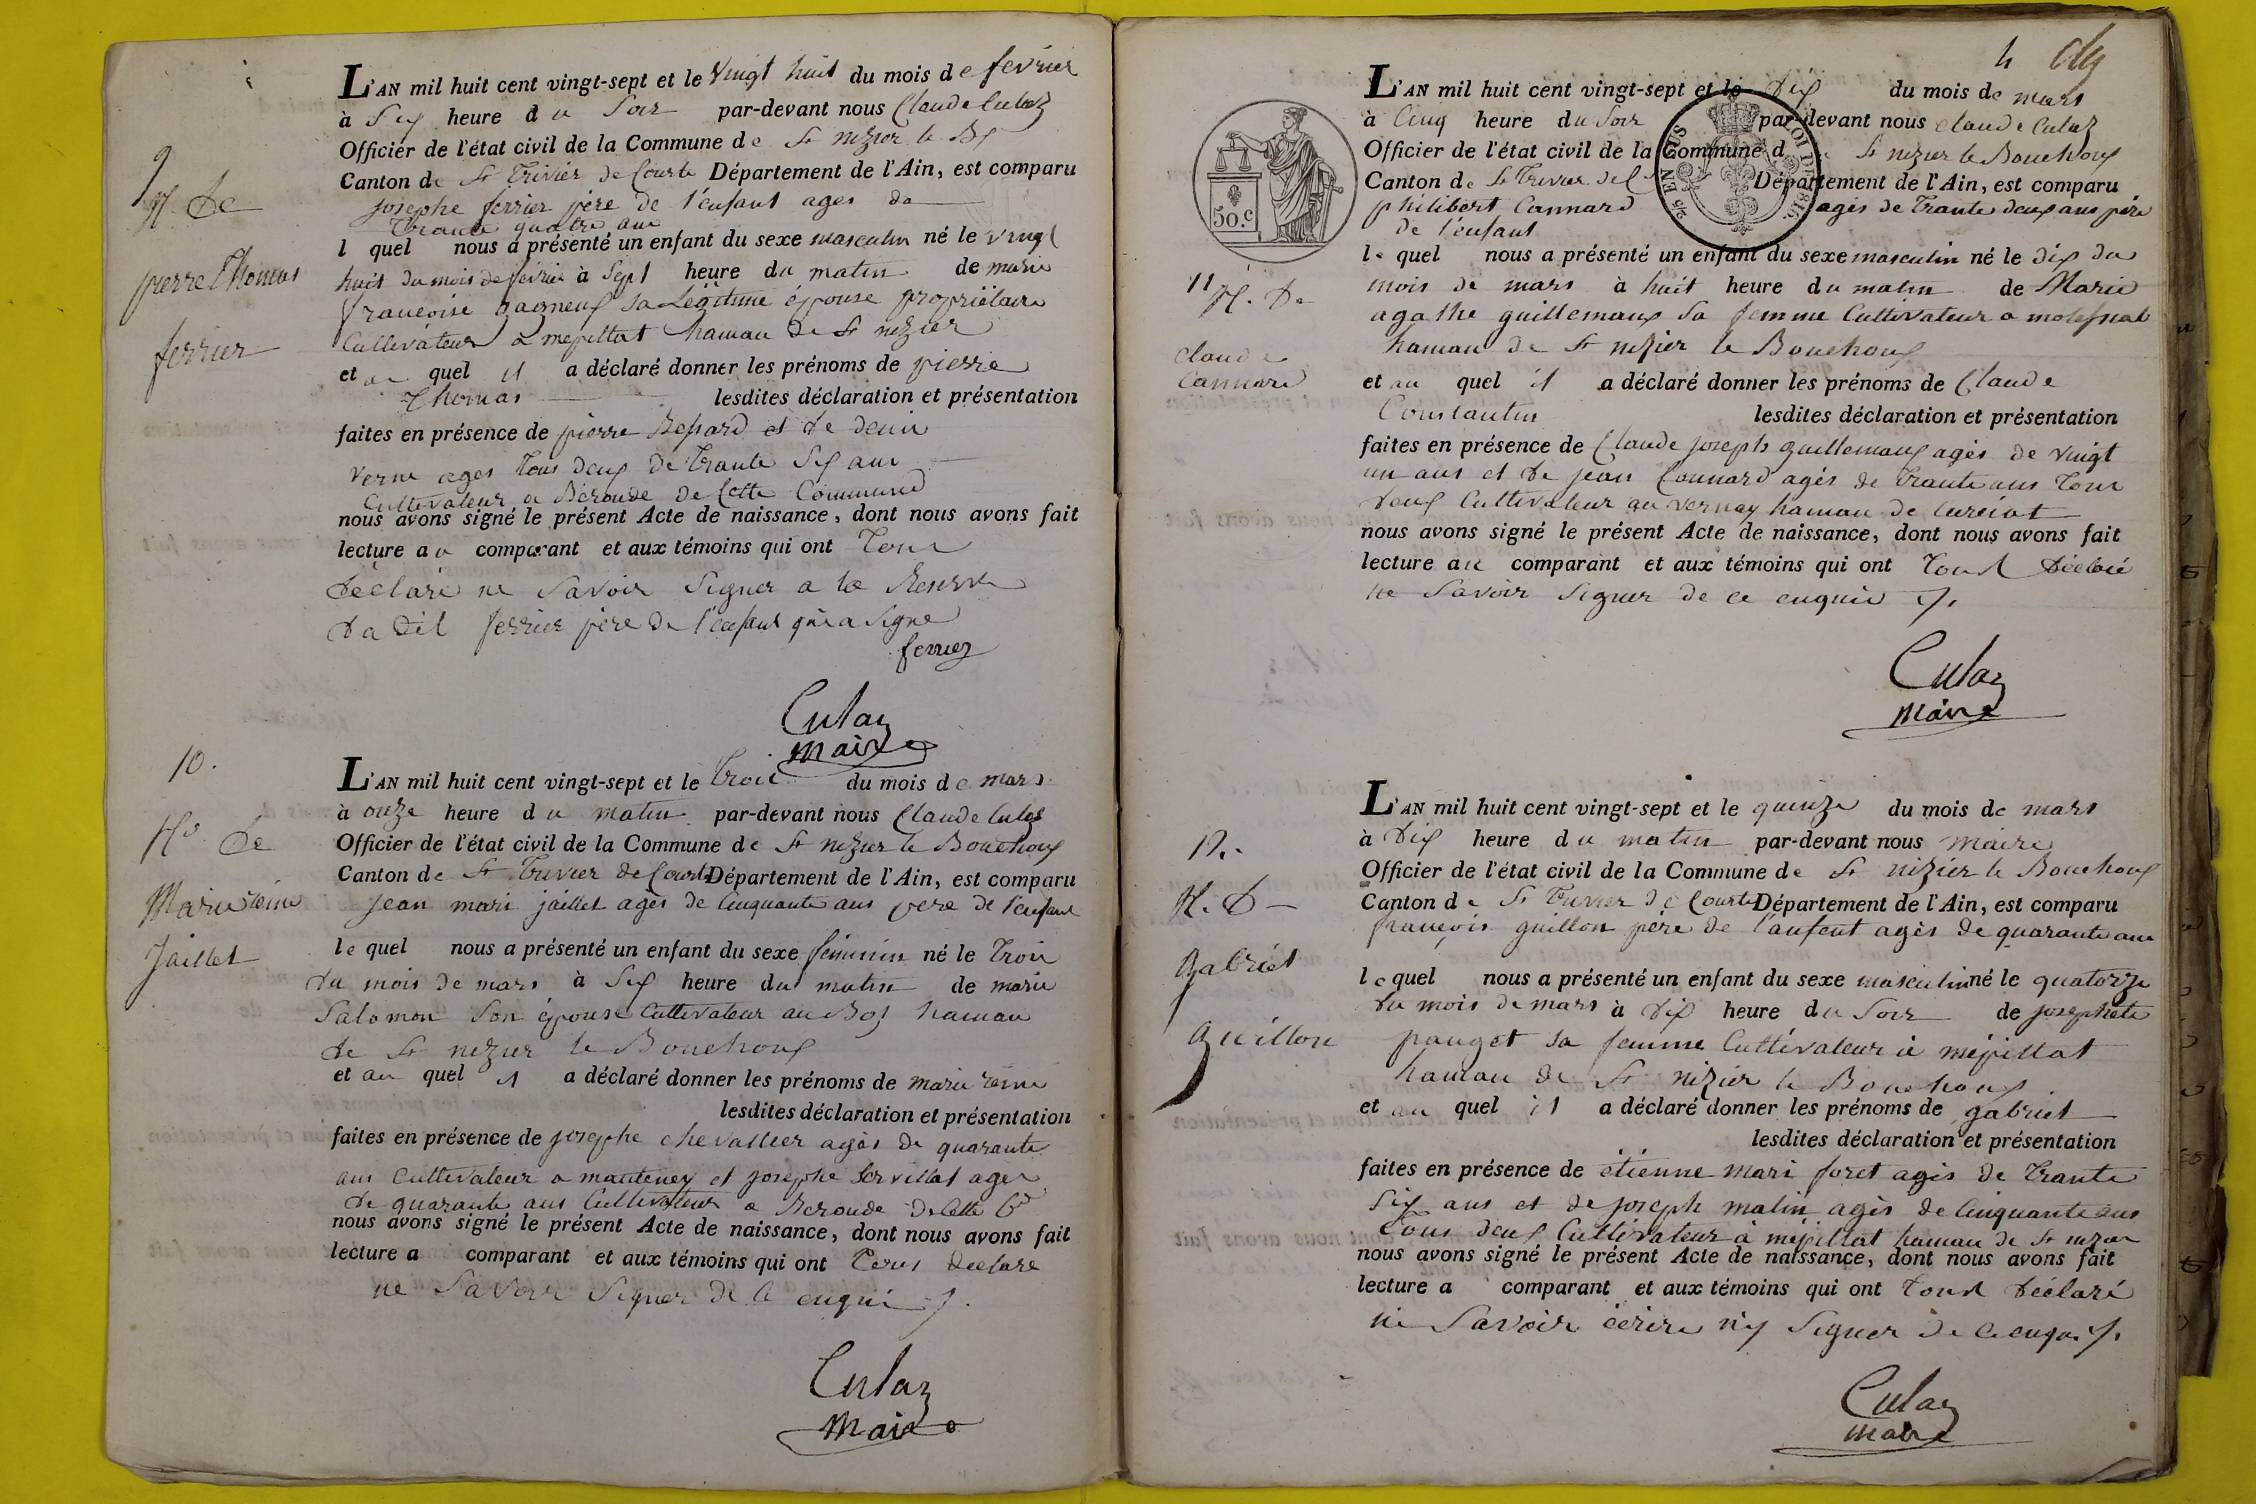 9
N. de
pierre Thomas
ferrier
L'AN mil huit cent vingt-sept et le vingt huit du mois de fevrier
à Six heure du Soir par-devant nous Claude Culaz
Officier de l'état civil de la Commune de St nizier le Bx
Canton de St Trivier de Courte Département de l'Ain, est comparu
josephe ferrier père de l'enfant ages de
Trante quatre ans
l quel nous a présenté un enfant du sexe masculin né le vingt
huit du mois de fevrier à Sept heure du matin de marie
françoise gagneux sa Légitime épouse propriétaire
Cultivateur a mepillat hamau de St nizier
et au quel il a déclaré donner les prénoms de pierre
Thomas lesdites déclaration et présentation
faites en présence de pierre Bessard et de denis
verne ages Tous deux de Trante Six ans
Cultivateur a Béroude de Cette Commune
nous avons signé le présent Acte de naissance, dont nous avons fait
lecture au comparant et aux témoins qui ont Tous
déclaré ne Savoir Signer a la Reserve
du dit ferrier père de l'enfant qui a Signe
ferrier
Culaz
maire
10.
No de
Marie reine
Jaillet
L'AN mil huit cent vingt-sept et le Trois du mois de mars
à onze heure du matin par-devant nous Claude Culaz
Officier de l'état civil de la Commune de St nizier le Bouchoux
Canton de St Trivier de Courte Département de l'Ain, est comparu
Jean mari jaillet agés de Cinquante ans pere de l'enfant
le quel nous a présenté un enfant du sexe féminin né le Trois
du mois de mars à Six heure du matin de marie
Salomon Son épouse Cultivateur au Bos hamau
de St nizier le Bouchoux
et au quel il a déclaré donner les prénoms de marie reine
lesdites déclaration et présentation
faites en présence de josephe chevallier agés de quarante
ans Cultivateur a manteney et josephe Servillat ages
de quarante ans Cultivateur a Beroude de Cette Cne
nous avons signé le présent Acte de naissance, dont nous avons fait
lecture a comparant et aux témoins qui ont Tous déclaré
ne Savoir Signer de Ce enquis
Culaz
Maire
4
50.c
EN SUS
LOI DE 1816.
11
N. de
claude
Cannard
L'AN mil huit cent vingt-sept et le dix du mois de mars
à Cinq heure du Soir par-devant nous claude Culaz
Officier de l'état civil de la Commune d St nizier le Bouchoux
Canton de St Trivier de C Département de l'Ain, est comparu
philibert Cannard agés de Trante deux ans père
de l'enfant
le quel nous a présenté un enfant du sexe masculin né le dix du
mois de mars à huit heure du matin de Marie
agathe guillemaux Sa femme Cultivateur a
hamau de St nizier le Bouchoux
et au quel il a déclaré donner les prénoms de Claude
Constantin lesdites déclaration et présentation
faites en présence de Claude joseph guillemaux agés de vingt
un ans et de jean Connard agés de Trante ans Tous
deux Cultivateur au vernay hamau de Curciat
nous avons signé le présent Acte de naissance, dont nous avons fait
lecture au comparant et aux témoins qui ont Tous déclaré
ne Savoir Signer de ce enquis
Culaz
Maire
12.
N. D
Gabriel
guillon
L'AN mil huit cent vingt-sept et le quinze du mois de mars
à dix heure du matin par-devant nous maire
Officier de l'état civil de la Commune de St nizier le Bouchoux
Canton de St Trivier de Courte Département de l'Ain, est comparu
françois guillon père de l'anfent agés de quarante ans
le quel nous a présenté un enfant du sexe masculin né le quatorze
du mois de mars à dix heure du Soir de josephete
pauget sa femme Cultivateur à mépillat
hamau de St nizier le Bouchoux
et au quel il a déclaré donner les prénoms de gabriel
lesdites déclaration et présentation
faites en présence de étienne mari foret agés de Trante
Six ans et de joseph malin agés de Cinquante ans
Tous deux Cultivateur à mépillat hamau de St nizier
nous avons signé le présent Acte de naissance, dont nous avons fait
lecture a comparant et aux témoins qui ont Tous déclaré
ne Savoir écrire ny Signer de Ce enquis
Culaz
maire